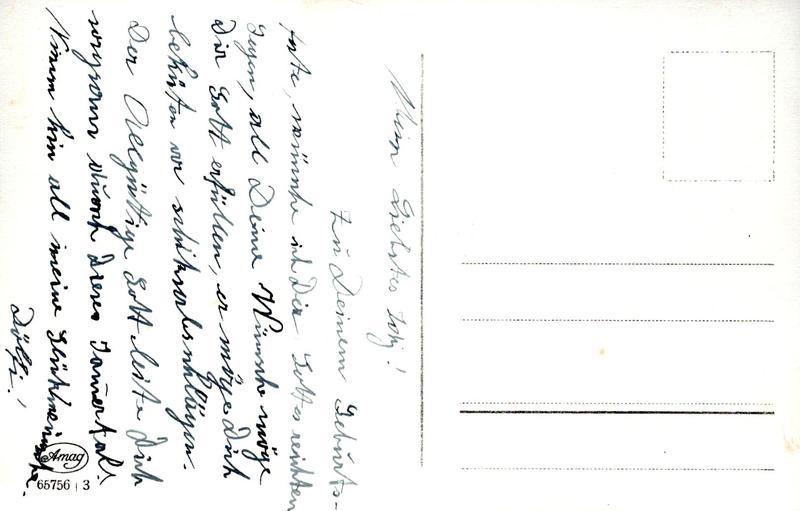 Mein Liebstes !
Zu Deinem Geburts-
feste, wünsche ich Dir Gottes reichten
Segen, all Deine Wünsche möge
Dir Gott erfüllen, er möge Dich
behüten vor schiksalsschlägen.
Der Allgütige Gott leite Dich
sorgsam durch dieses Jamertal!
Nimm hin all meine Glükwünsche.
Dölfi!
Amag
65756 | 3